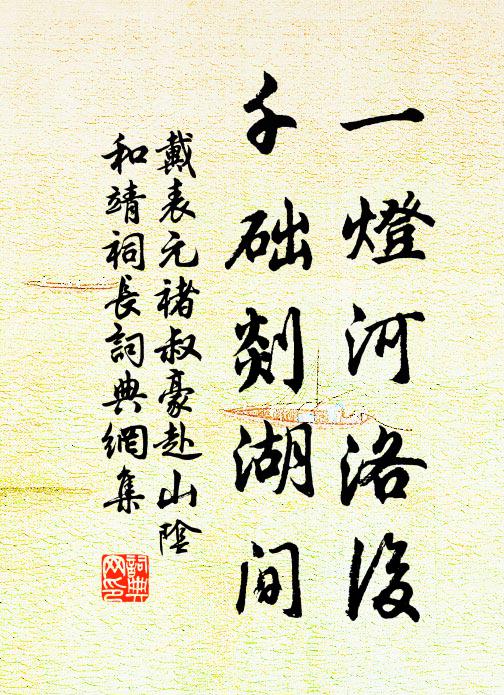 一燈河洛後
千础剡湖間
戴表元褚叔豪赴山陰
和靖祠長詞典網集
詞典网印